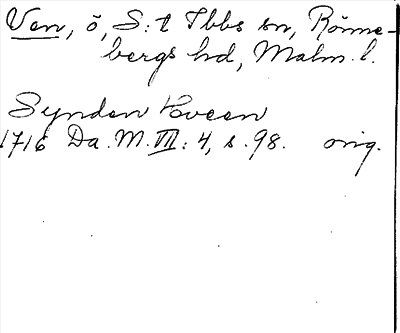 Ven, ö, S:t Ibbs sn, Rönne-
bergs hd, Malm. l.
Synden Hveen
1716 Da. M. VII: 4, s. 98. orig.